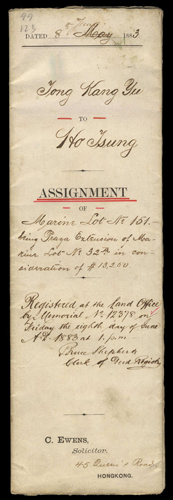 99
123
DATED 8th June May 1883
Tong Kang Yu
TO
Ho Tsung
ASSIGNMENT
OF
Marine Lot No 151.
being Praya Extension of Ma-
rine Lot No 32A in con-
sideration of $13,250
Registered at the Land Office
by Memorial No 12378 on
Friday the eighth day of June
A.D. 1883 at 1. p.m.
Bruce Shepherd
Clerk of Deed Registry
C. EWENS,
Solicitor,
45 Queen's Road,
HONGKONG.